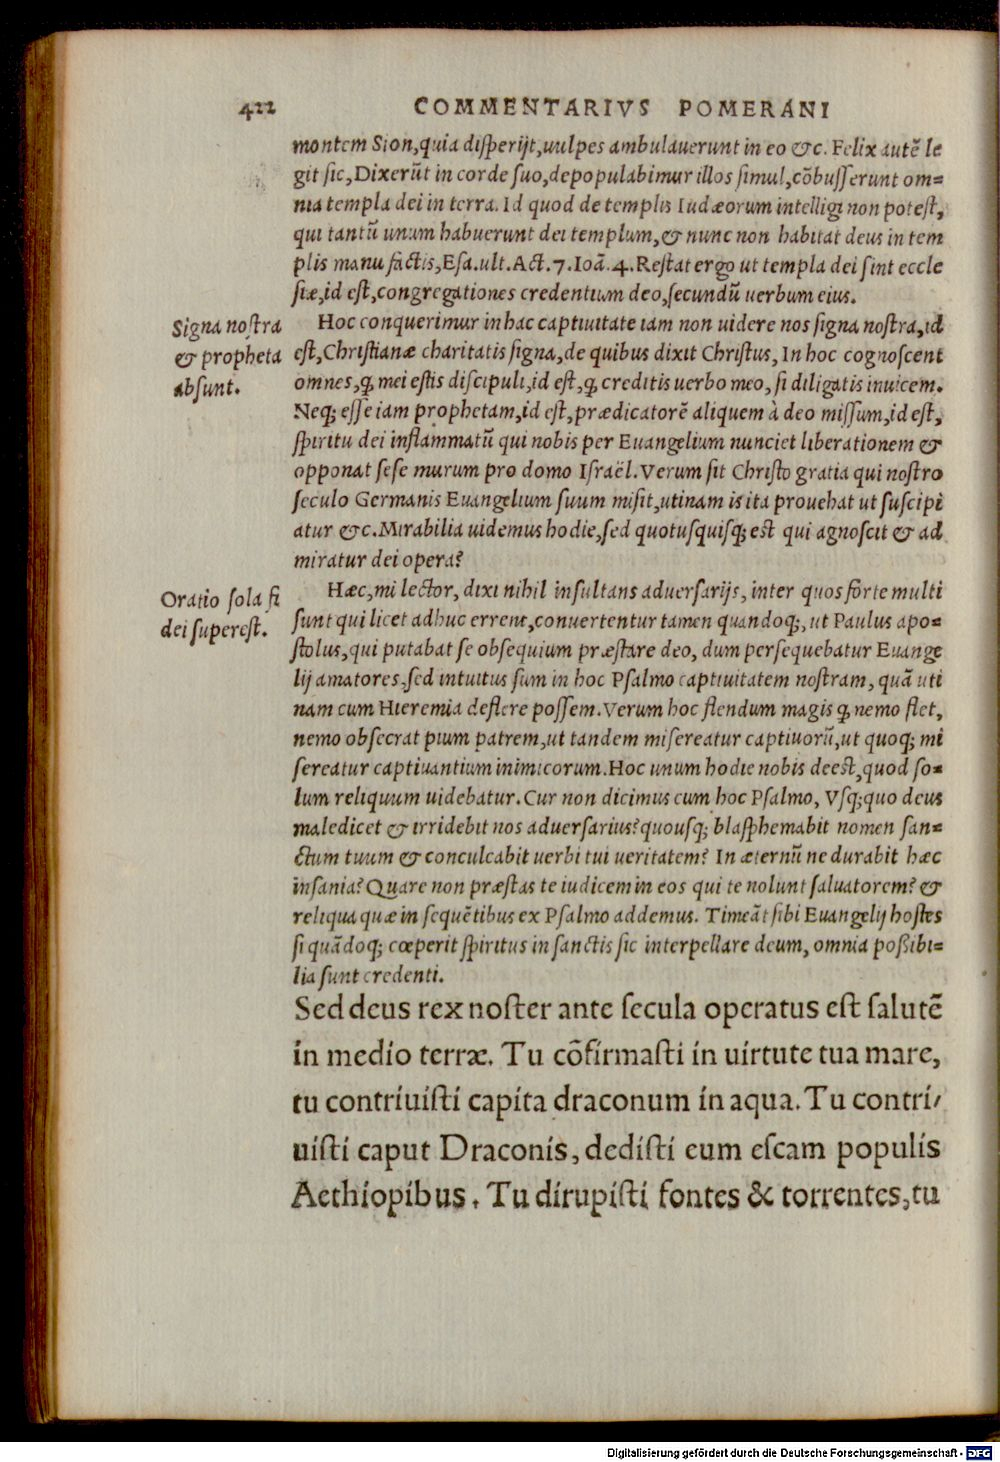 422 COMMENTARIVS POMERANI
montem Sion,quia disperijt,uulpes ambulauerunt in eo &c. Felix autẽ le
git sic,Dixerũt in corde suo,depopulabimur illos simul,cõbusserunt om=
nia templa dei in terra. Id quod de templis Iudæorum intelligi non potest,
qui tantũ unum habuerunt dei templum,& nunc non habitat deus in tem
plis manu factis,Esa.ult.Act.7.Ioã.4.Restat ergo ut templa dei sint eccle
siæ,id est,congregationes credentium deo,secundũ uerbum eius.
Signa nostra
& propheta
absunt.
Hoc conquerimur in hac captiuitate iam non uidere nos signa nostra,id
est,Christianæ charitatis signa,de quibus dixit Christus, In hoc cognoscent
omnes,ꝙ mei estis discipuli,id est,ꝙ creditis uerbo meo, si diligatis inuicem.
Neqꝫ esse iam prophetam,id est,prædicatorẽ aliquem à deo missum,id est,
spiritu dei inflammatũ qui nobis per Euangelium nunciet liberationem &
opponat sese murum pro domo Israël.Verum sit Christo gratia qui nostro
seculo Germanis Euangelium suum misit,utinam is ita prouehat ut suscipi
atur &c.Mirabilia uidemus hodie,sed quotusquisqꝫ est qui agnoscit & ad
miratur dei opera?
Oratio sola fi
dei superest.
Hæc,mi lector, dixi nihil insultans aduersarijs, inter quos forte multi
sunt qui licet adhuc errent,conuertentur tamen quandoqꝫ, ut Paulus apo=
stolus,qui putabat se obsequium præstare deo, dum persequebatur Euange
lij amatores,sed intuitus sum in hoc Psalmo captiuitatem nostram, quã uti
nam cum Hieremia deflere possem.Verum hoc flendum magis ꝙ nemo flet,
nemo obsecrat pium patrem,ut tandem misereatur captiuorũ,ut quoqꝫ mi
sereatur captiuantium inimicorum.Hoc unum hodie nobis deest,quod so=
lum reliquum uidebatur. Cur non dicimus cum hoc Psalmo, Vsqꝫquo deus
maledicet & irridebit nos aduersarius?quousqꝫ blasphemabit nomen san=
ctum tuum & conculcabit uerbi tui ueritatem? In æternũ ne durabit hæc
insania? Quare non præstas te iudicem in eos qui te nolunt saluatorem? &
reliqua quæ in sequẽtibus ex Psalmo addemus. Timeãt sibi Euangelij hostes
si quãdoqꝫ cœperit spiritus in sanctis sic interpellare deum, omnia possibi=
lia sunt credenti.
Sed deus rex noster ante secula operatus est salutẽ
in medio terræ. Tu cõfirmasti in uirtute tua mare,
tu contriuisti capita draconum in aqua. Tu contri/
uisti caput Draconis, dedisti eum escam populis
Aethiopibus. Tu dirupisti fontes & torrentes,tu
Digitalisierung gefördert durch die Deutsche Forschungsgemeinschaft - DFG